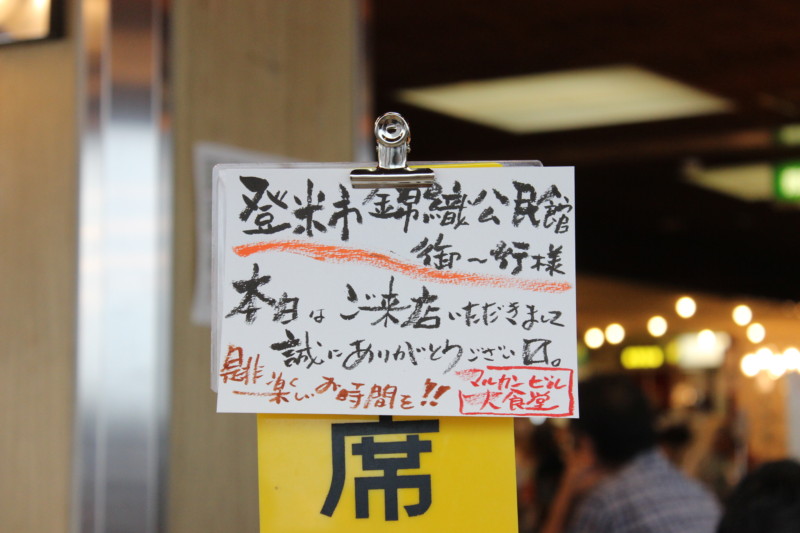 登米市錦織公民館
御一行様
本日はご来店いただきまして
誠にありがとうござい〼。
是非楽しいお時間を!!
マルカンビル
大食堂
席